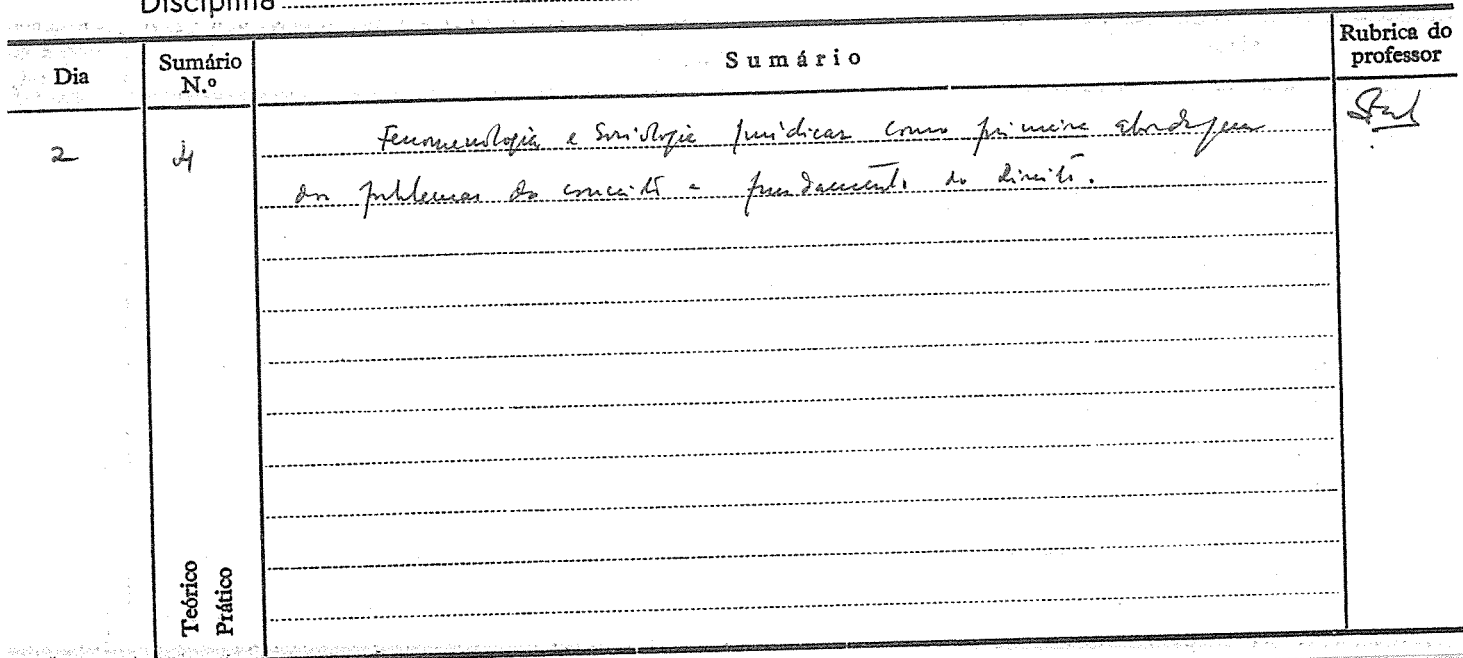 Disciplina
Dia
Sumário N.º
Sumário
Rubrica do professor
2
4
Fenomenologia e Sociologia jurídicas como primeira abordagem
dos problemas do conceito e fundamento do direito.
Teórico
Prático